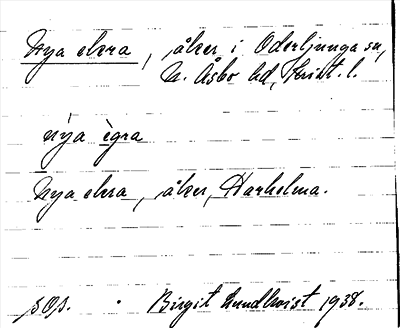 Nya ekra, åker i Oderljunga sn,
N. Åsbo hd, Krist. l.
nya ègra
Nya ekra, åker, Harholma.
sOp. · Birgit Lundkvist 1938.